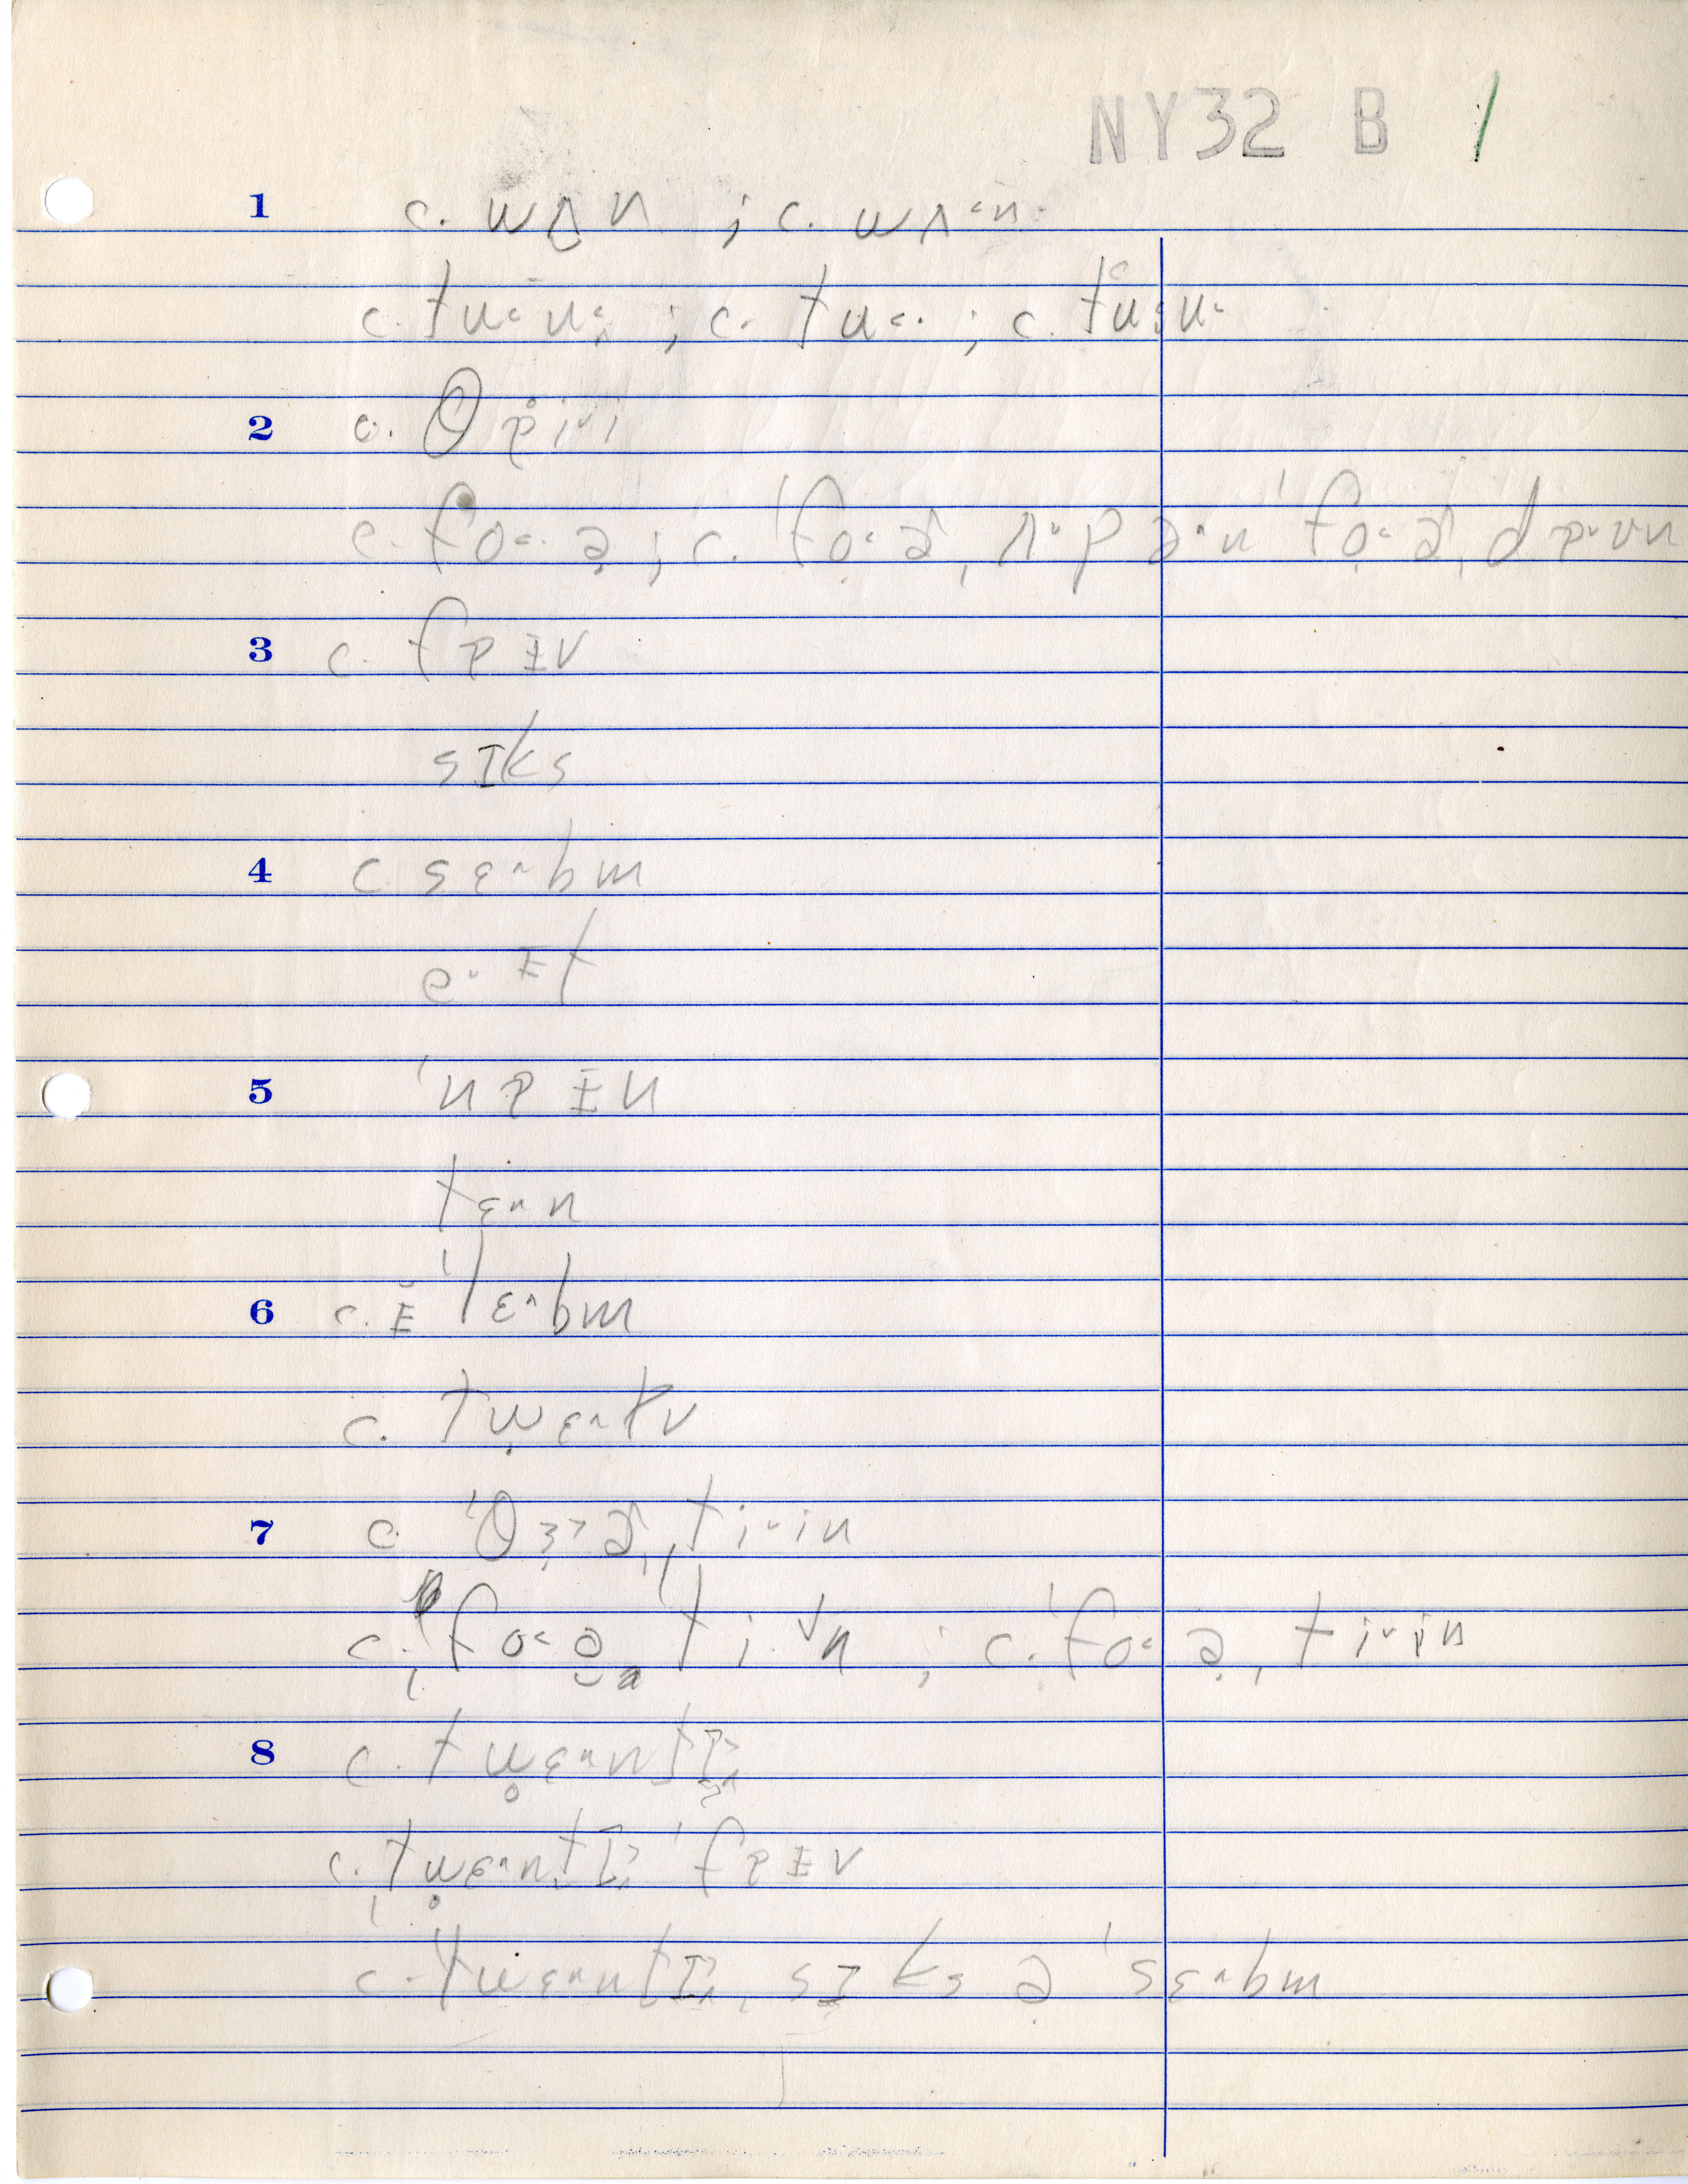 NY32 B /
1 c. wʌn ; c. wʌ˂n
c. tu˂u˂ ; c. tu˂· ; c. tu˂u˂
2 c. θɒi˅i
c. fo˂·ə ; c. ˈfo˂ə
3 c. fɒɪv
sɪks
4 c. sɛ˄bm
e˅ɪt
5 ˈnɒɪn
tɛ˄n
6 c. ɪ̆ˈlɛ˄bm
c. twɛ˄lv
7 c. ˈθɜ˃ɚˌti˅in
c. ˌfo˂əˈti·˅n ; c. ˈfo˂əˌti˅in
8 c. twɛ˄ntɪ˃
c. ˌtwɛ˄ntɪ˃ ˈfɒɪv
c. ˈtwɛ˄ntɪ˄ˌsɪks ə ˈsɛ˄bm